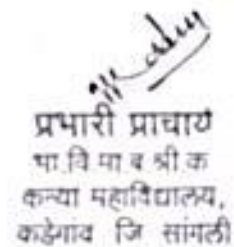 प्रभारी प्राचार्य
भा. वि मा ब श्री क
कन्या महाविद्यालय,
कडेगांव जि सांगली